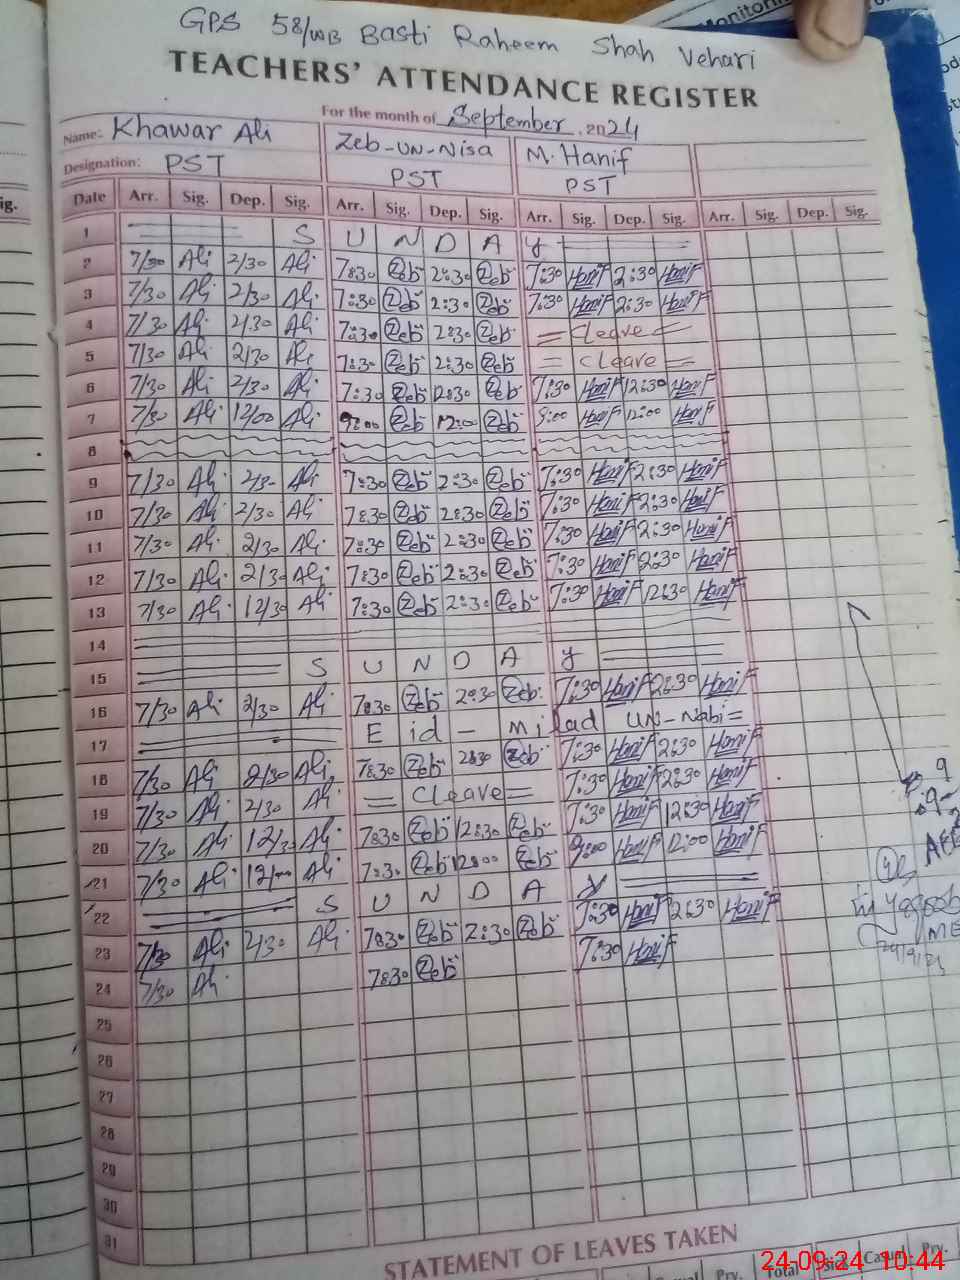 GPS 58/WB Basti Raheem Shah Vehari
TEACHERS' ATTENDANCE REGISTER
For the month of September, 2024
Name: Khawar Ali Zeb-un-Nisa M. Hanif
Designation: PST PST PST
Date Arr. Sig. Dep. Sig. Arr. Sig. Dep. Sig. Arr. Sig. Dep. Sig. Arr. Sig. Dep. Sig.
1 S U N D A Y
2 7/30 Ali 2/30 Ali 7:30 Zeb 2:30 Zeb 7:30 Hanif 2:30 Hanif
3 7/30 Ali 2/30 Ali 7:30 Zeb 2:30 Zeb 7:30 Hanif 2:30 Hanif
4 7/30 Ali 2/30 Ali 7:30 Zeb 2:30 Zeb = Cleave =
5 7/30 Ali 2/30 Ali 7:30 Zeb 2:30 Zeb = Cleave =
6 7/30 Ali 2/30 Ali 7:30 Zeb 12:30 Zeb 7:30 Hanif 12:30 Hanif
7 7/30 Ali 12/00 Ali 9:00 Zeb 12:00 Zeb 9:00 Hanif 12:00 Hanif
8
9 7/30 Ali 2/30 Ali 7:30 Zeb 2:30 Zeb 7:30 Hanif 2:30 Hanif
10 7/30 Ali 2/30 Ali 7:30 Zeb 2:30 Zeb 7:30 Hanif 2:30 Hanif
11 7/30 Ali 2/30 Ali 7:30 Zeb 2:30 Zeb 7:30 Hanif 2:30 Hanif
12 7/30 Ali 2/30 Ali 7:30 Zeb 2:30 Zeb 7:30 Hanif 2:30 Hanif
13 7/30 Ali 12/30 Ali 7:30 Zeb 2:30 Zeb 7:30 Hanif 12:30 Hanif
14
15 S U N D A Y
16 7/30 Ali 2/30 Ali 7:30 Zeb 2:30 Zeb 7:30 Hanif 2:30 Hanif
17 Eid - Milad un-Nabi =
18 7/30 Ali 2/30 Ali 7:30 Zeb 2:30 Zeb 7:30 Hanif 2:30 Hanif
19 7/30 Ali 2/30 Ali = Cleave = 7:30 Hanif 2:30 Hanif
20 7/30 Ali 12/30 Ali 7:30 Zeb 12:30 Zeb 7:30 Hanif 12:30 Hanif
21 7/30 Ali 12/00 Ali 7:30 Zeb 12:00 Zeb 9:00 Hanif 12:00 Hanif
22 S U N D A Y
23 7/30 Ali 2/30 Ali 7:30 Zeb 2:30 Zeb 7:30 Hanif 2:30 Hanif
24 7/30 Ali 7:30 Zeb 7:30 Hanif
25
26
27
28
29
30
31
STATEMENT OF LEAVES TAKEN
Total Sick Casual Prv.
24-09-24 10:44